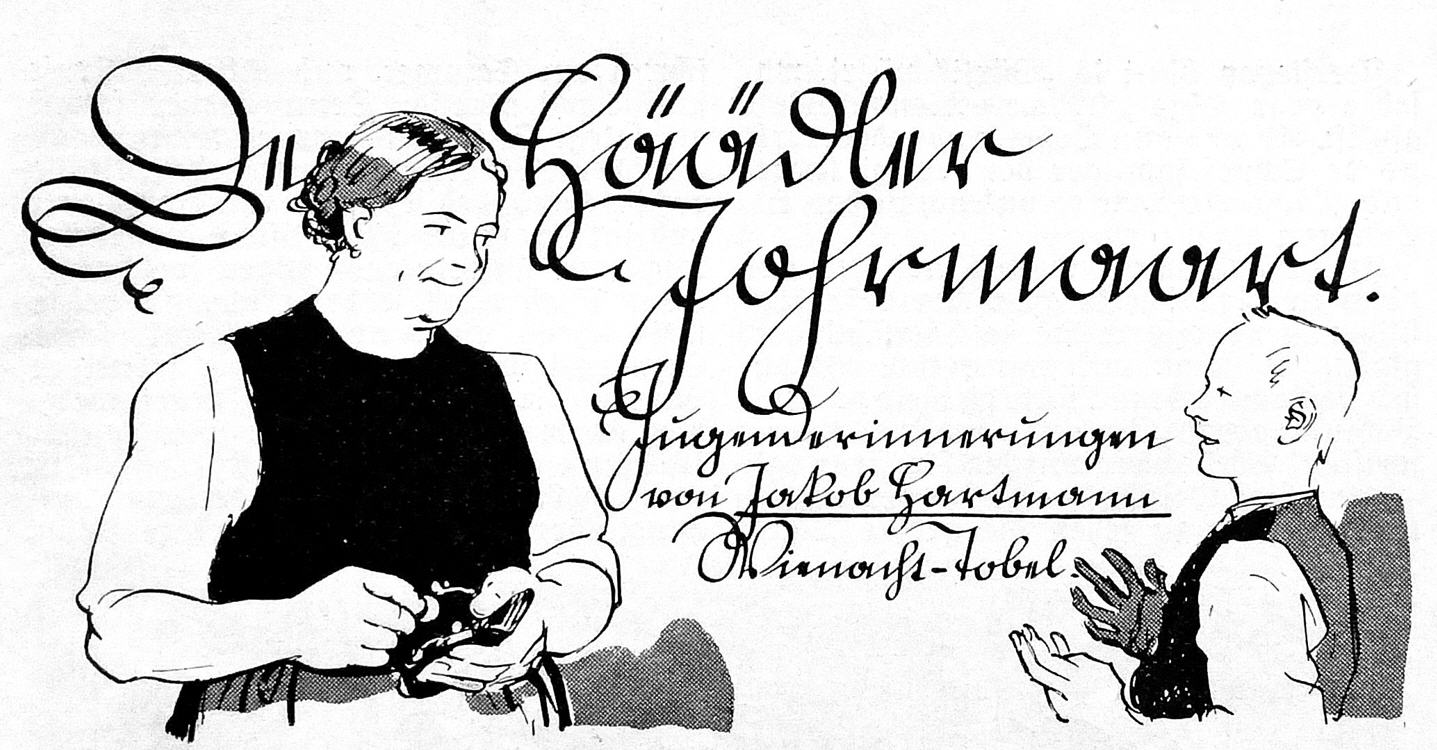 De Häädler
Johrmaart.
Jugenderinnerungen
von Jakob Hartmann
Wienacht-Tobel.